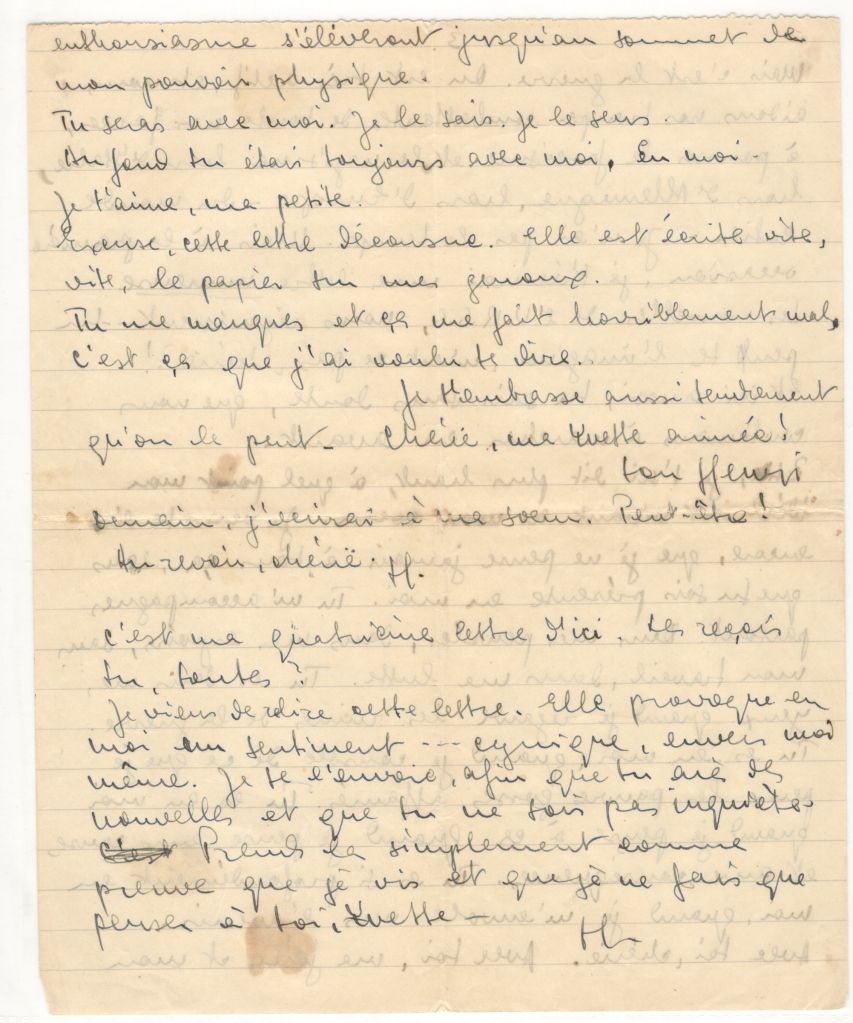 enthousiasme s'élèveront jusqu'au sommet de
mon pouvoir physique.
Tu seras avec moi. Je le sais. Je le sens.
Au fond tu étais toujours avec moi, En moi -
Je t'aime, ma petite.
Excuse, cette lettre décousue. Elle est écrite vite,
vite, le papier sur mes genoux.
Tu me manques et ça, me fait horriblement mal,
c'est ça que j'ai voulu te dire.
Je t'embrasse aussi tendrement
qu'on le peut - Chérie, ma Yvette aimée!
ton Henri
Demain, j'écrirai à ma soeur. Peut-être!
Au revoir, chérie. H.
C'est ma quatrième lettre d'ici. Les reçois
tu, toutes?
Je viens de relire cette lettre. Elle provoque en
moi un sentiment --- cynique, envers moi
même. Je te l'envoie, afin que tu aie des
nouvelles et que tu ne sois pas inquiète.
Prends la simplement comme
preuve que je vis et que je ne fais que
penser à toi, Yvette -
H.